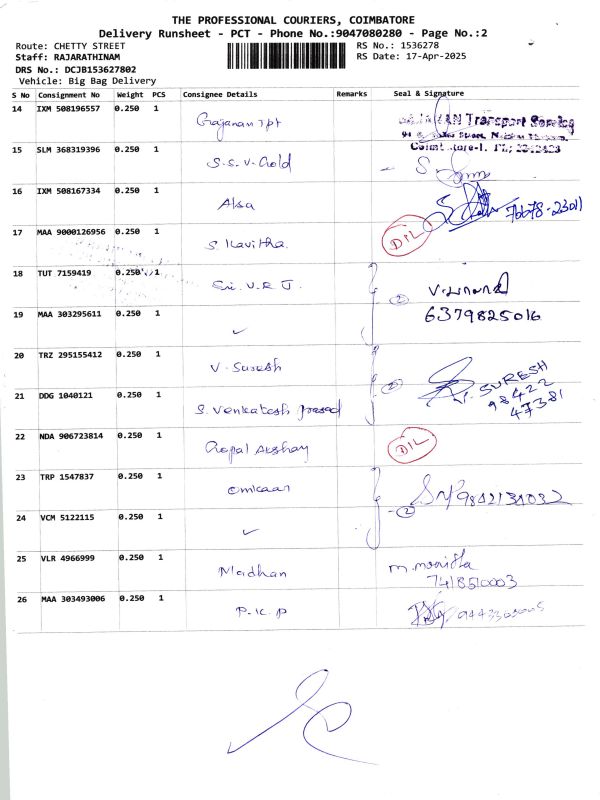 THE PROFESSIONAL COURIERS, COIMBATORE
Delivery Runsheet - PCT - Phone No.:9047080280 - Page No.:2
Route: CHETTY STREET
RS No.: 1536278
Staff: RAJARATHINAM
RS Date: 17-Apr-2025
DRS No.: DCJB153627802
Vehicle: Big Bag Delivery
S No Consignment No Weight PCS Consignee Details Remarks Seal & Signature
14 IXM 508196557 0.250 1 Gajanan Tpt
Transport
Coimbatore-1.
15 SLM 368319396 0.250 1 S.S.V-Gold
16 IXM 508167334 0.250 1 Alsa 76678-23011
17 MAA 9000126956 0.250 1 S. Kavitha. DIL
18 TUT 7159419 0.250 1 Sri. V.R J. 2
6379825016
19 MAA 303295611 0.250 1 ✓
20 TRZ 295155412 0.250 1 V. Suresh 2
V. SURESH
98422
47381
21 DDG 1040121 0.250 1 S. Venkatesh prasad
22 NDA 906723814 0.250 1 Gopal Akshay DIL
23 TRP 1547837 0.250 1 omkaar 2
9842131032
24 VCM 5122115 0.250 1 ✓
25 VLR 4966999 0.250 1 Madhan
7418510003
26 MAA 303493006 0.250 1 P.K.P